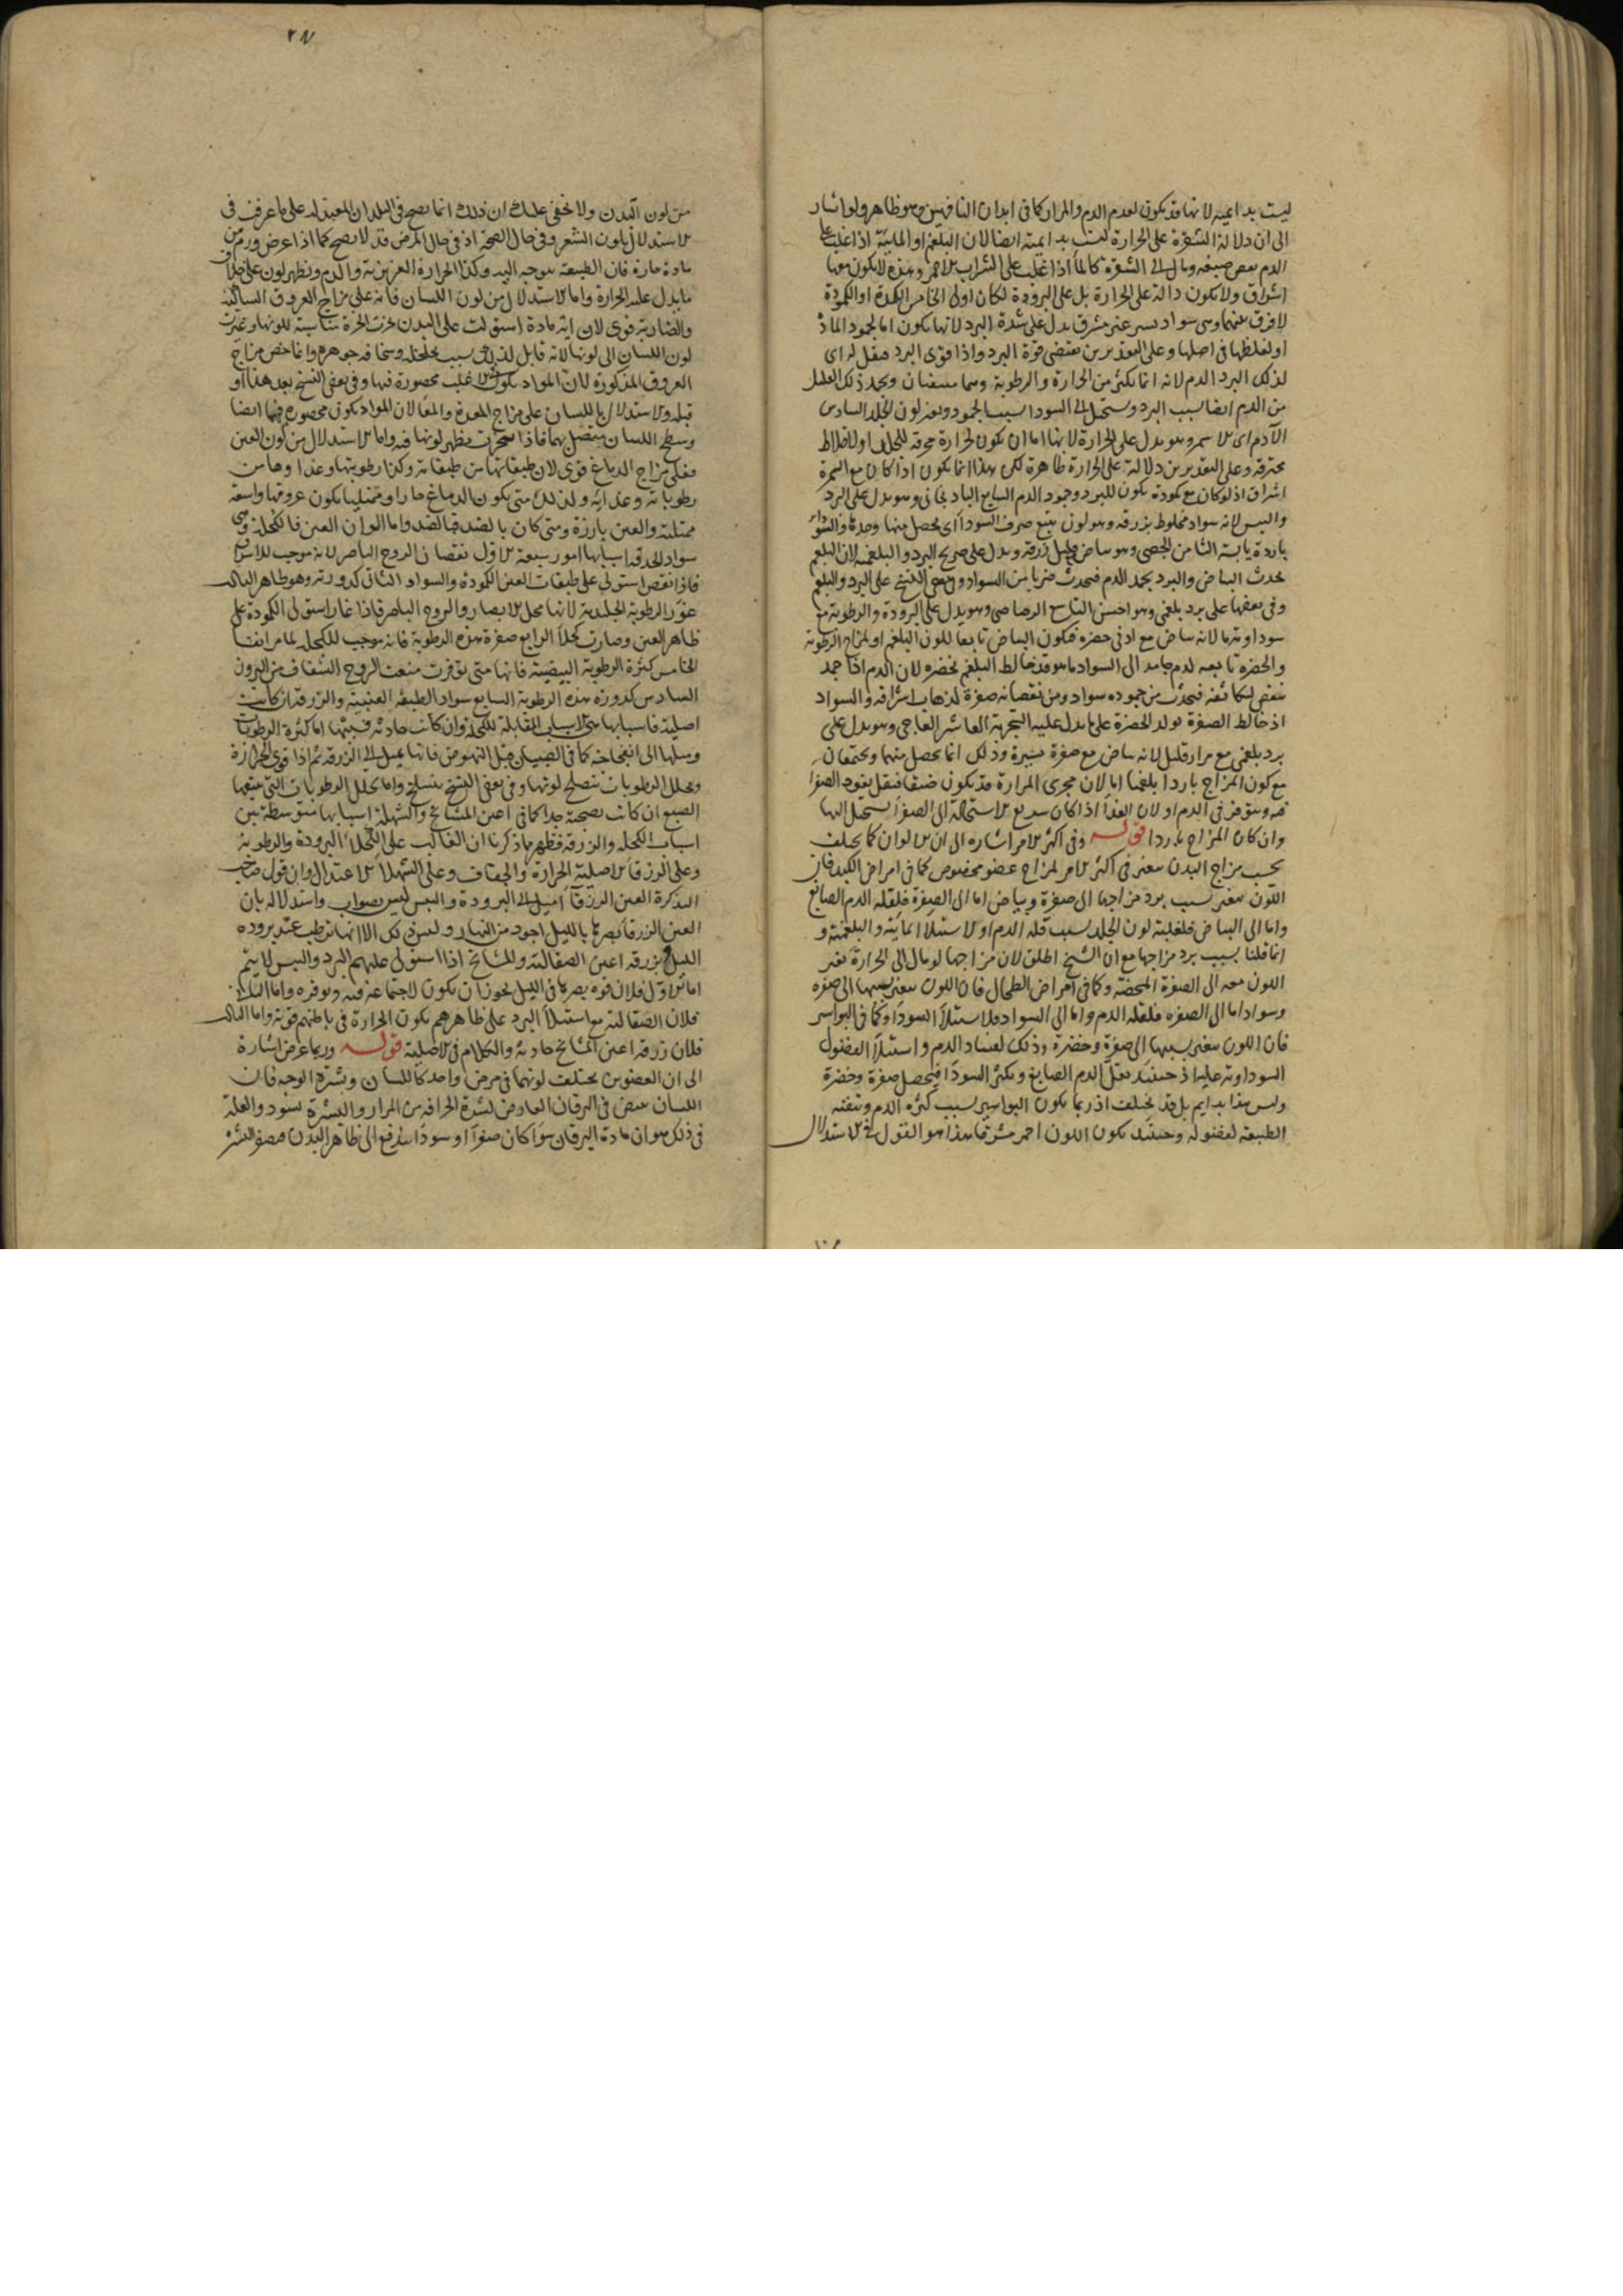 ليست بدايمية لانها قد يكون لعدم الدم والمرار كما فى ابدان الناقهين وهو ظاهر ولو اشار
الى ان دلالة الشقرة على الحرارة ليست بدايمية ايضا لان البلغم او المايية اذا غلب على
الدم نقص صبغه ومال الى الشقرة كالماء اذا غلب على الشراب الاحمر وهذه لا يكون معها
اشراق ولا يكون دالة على الحرارة بل على البرودة لكان اولى الخامس الكمدة او الكمودة
لا فرق بينهما وهى سواد يسير غير مشرق يدل على شدة البرد لانها يكون اما لجمود المادة
او لغلظها فى اصلها وعلى التقديرين يقتضى قوة البرد واذا قوى البرد فيقل له اى
لذلك البرد الدم لانه انما يكثر من الحرارة والرطوبة وهما منتفيان ويجمد ذلك القليل
من الدم ايضا بسبب البرد ويستحيل الى السوداء بسبب الجمود ويغير لون الجلد السادس
الآدم اى الاسمر وهو يدل على الحرارة لانها اما ان يكون لحرارة محرقة للجلد او لاخلاط
محترقة وعلى التقديرين دلالته على الحرارة ظاهرة لكن هذا انما يكون اذا كان مع السمرة
اشراق اذ لو كان مع كمودة يكون للبرد وجمود الدم السابع الباذنجانى وهو يدل على البرد
واليبس لانه سواد مخلوط بزرقة وهو لون يتبع صرف السوداء اى يحصل منها وحدها والسوداء
باردة يابسة الثامن الجصى وهو بياض قليل زرقة ويدل على صريح البرد والبلغمية لان البلغم
يحدث البياض والبرد يجمد الدم فيحدث ضربا من السواد وفى بعض النسخ على البرد والبلغم
وفى بعضها على برد بلغمى وهو احسن التاسع الرصاصى وهو يدل على البرودة والرطوبة مع
سوداوية ما لانه بياض مع ادنى خضرة فيكون البياض تابعا للون البلغم او لمزاج الرطوبة
والخضرة تابعة لدم جامد الى السواد ما هو قد خالط البلغم فخضره لان الدم اذا جمد
ينقص لتكاثفه فيحدث من جموده سواد ومن نقصانه صفرة لذهاب اشراقه والسواد
اذ خالط الصفرة تولد الخضرة على ما يدل عليه التجربة العاشر العاجى وهو يدل على
برد بلغمى مع مرار قليل لانه بياض مع صفرة يسيرة وذلك انما يحصل منهما ويجتمعان
مع كون المزاج باردا بلغميا اما لان مجرى المرارة قد يكون ضيقا فيقل نفوذ الصفراء
فيه ويتوفر فى الدم او لان الغذاء اذا كان سريع الاستحالة الى الصفراء يستحيل اليها
وان كان المزاج باردا قوله وفى اكثر الامر اشاره الى ان الالوان كما يختلف
بحسب مزاج البدن يتغير فى اكثر الامر لمزاج عضو مخصوص كما فى امراض الكبد فان
اللون يتغير بسبب برد مزاجها الى صفرة وبياض اما الى الصفرة فلقلة الدم الصابغ
واما الى البياض فلغلبة لون الجلد بسبب قلة الدم او لاستيلاء المايية والبلغمية و
انما قلنا بسبب برد مزاجها مع ان الشيخ اطلق لان مزاجها لو مال الى الحرارة تغير
اللون معه الى الصفرة المحضة وكما فى امراض الطحال فان اللون يتغير بسببها الى صفرة
وسواد اما الى الصفرة فلقلة الدم واما الى السواد فلاستيلاء السوداء وكما فى البواسير
فان اللون يتغير بسببها الى صفرة وخضرة وذلك لفساد الدم واستيلاء الفضول
السوداوية عليه اذ حينئذ يقل الدم الصابغ ويكثر السوداء فيحصل صفرة وخضرة
وليس هذا بدايم بل قد يختلف اذ ربما يكون البواسير بسبب كثرة الدم وتنقية
الطبيعة لفضوله وحينئذ يكون اللون احمر مشرقا هذا هو القول فى الاستدلال
من لون البدن ولا يخفى عليك ان ذلك انما يصح فى البلدان المعتدلة على ما عرف فى
الاستدلال بلون الشعر وفى حال الصحة اذ فى حال المرض قد لا يصح كما اذا عرض ورم من
مادة حارة فان الطبيعة يتوجه اليه وكذا الحرارة الغريزية والدم ويظهر لون على خلاف
ما يدل عليه الحرارة واما الاستدلال من لون اللسان فانه على مزاج العروق الساكنة
والضاربة قوى لان اية مادة استولت على البدن بخرت ابخرة مناسبة للونها وغيرت
لون اللسان الى لونها لانه قابل لذلك بسبب تخلخله وسخافة جوهره وانما خص مزاج
العروق المذكورة لان المواد يكون فى الاغلب محصورة فيها وفى بعض النسخ بعد هذا او
قبله والاستدلال باللسان على مزاج المعدة والمعا لان المواد يكون محصورة فيهما ايضا
وسطح اللسان متصل بهما فاذا تبخرت يظهر لونها فيه واما الاستدلال من لون العين
فعلى مزاج الدماغ قوى لان طبقاتها من طبقاته وكذا رطوبتها وغذاوها من
رطوباته وغذايه ولذلك متى يكون الدماغ حارا وممتليا يكون عروقها واسعة
ممتلية والعين بارزة ومتى كان بالضد فبالضد واما الوان العين فالكحلة وهى
سواد الحدقة اسبابها امور سبعة الاول نقصان الروح الباصر لانه موجب للاشراق
فاذا نقص استولى على طبقات العين الكمودة والسواد الثانى كدورته وهو ظاهر الثالث
غور الرطوبة الجليدية لانها محل الابصار والروح الباصر فاذا غار استولى الكمودة على
ظاهر العين وصارت كحلاء الرابع صغرة هذه الرطوبة فانه موجب للكحلة لما مر انفا
الخامس كثرة الرطوبة البيضية فانها متى توفرت منعت الروح الشفاف من البروز
السادس كدورة هذه الرطوبة السابع سواد الطبقة العنبية والزرقة ان كانت
اصلية فاسبابها هى الاسباب المقابلة للكحلة وان كانت حادثة فسببها اما كثرة الرطوبات
وميلها الى الفجاجة كما فى الصبيان قبل النهوض فانها يميل الى الزرقة ثم اذا قوى الحرارة
وتحلل الرطوبات تنصلح لونها وفى بعض النسخ ينسلخ واما تحلل الرطوبات التى يتبعها
الصبغ ان كانت نضيجة جدا كما فى اعين المشايخ والشهلة اسبابها متوسطة بين
اسباب الكحلة والزرقة فظهر مما ذكرنا ان الغالب على الكحلاء البرودة والرطوبة
وعلى الزرقاء الاصلية الحرارة والجفاف وعلى الشهلاء الاعتدال وان قول صاحب
التذكرة العين الزرقاء اميل الى البرودة واليبس ليس بصواب واستدلاله بان
العين الزرقاء بصرها بالليل اجود من النهار وليس ذلك الا انها ترطب عند برودة
الليل وبزرقة اعين الصقالبة والمشايخ اذا استولى عليهم البرد واليبس لا يتم
اما الاول فلان قوة بصرها فى الليل يجوز ان يكون لاجتماعه فيه وتوفره واما الثانى
فلان الصقالبة مع استيلاء البرد على ظاهرهم يكون الحرارة فى باطنهم قوية واما الثالث
فلان زرقة اعين المشايخ حادثة والكلام فى الاصلية قوله وربما عرض اشارة
الى ان العضوين يختلف لونهما فى مرض واحد كاللسان وبشرة الوجه فان
اللسان يبيض فى اليرقان العارض لشدة الحرافة من المرار والبشرة يسود والعلة
فى ذلك هو ان مادة اليرقان سواء كان صفراء او سوداء يندفع الى ظاهر البدن فيصفر البشرة